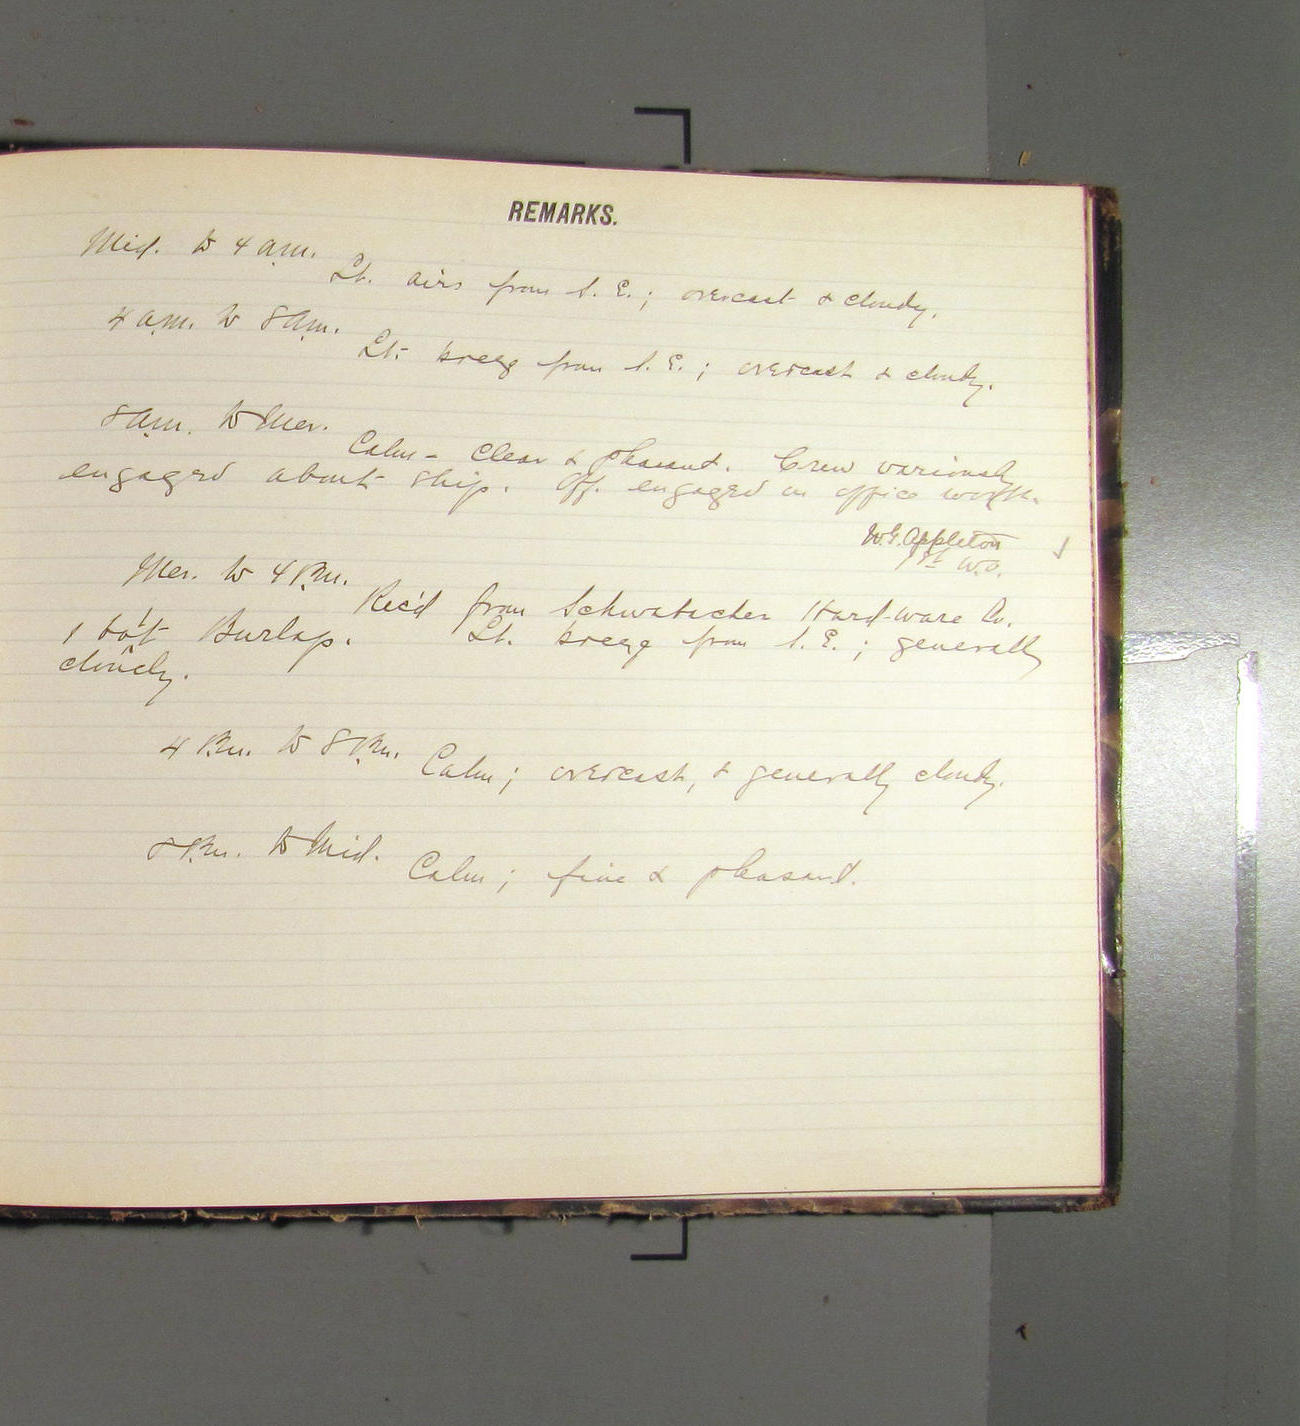 REMARKS.
Mid. to 4 a.m.
Lt. airs from S. E. ; overcast & cloudy.
4 a.m. to 8 a.m.
Lt. breeze from S. E. ; overcast & cloudy.
8 a.m. to Mer.
Calm - clear & pleasant. Crew variously
engaged about ship. Off. engaged in office work.
W.E. Appleton
1st W.O.
Mer. to 4 P.m.
Rec'd from Schwabacher Hardware Co.
1 Burlap. Lt. breeze from S. E. ; generally
cloudy.
4 P.m. to 8 P.m.
Calm ; overcast, & generally cloudy.
8 P.m. to Mid.
Calm ; fine & pleasant.